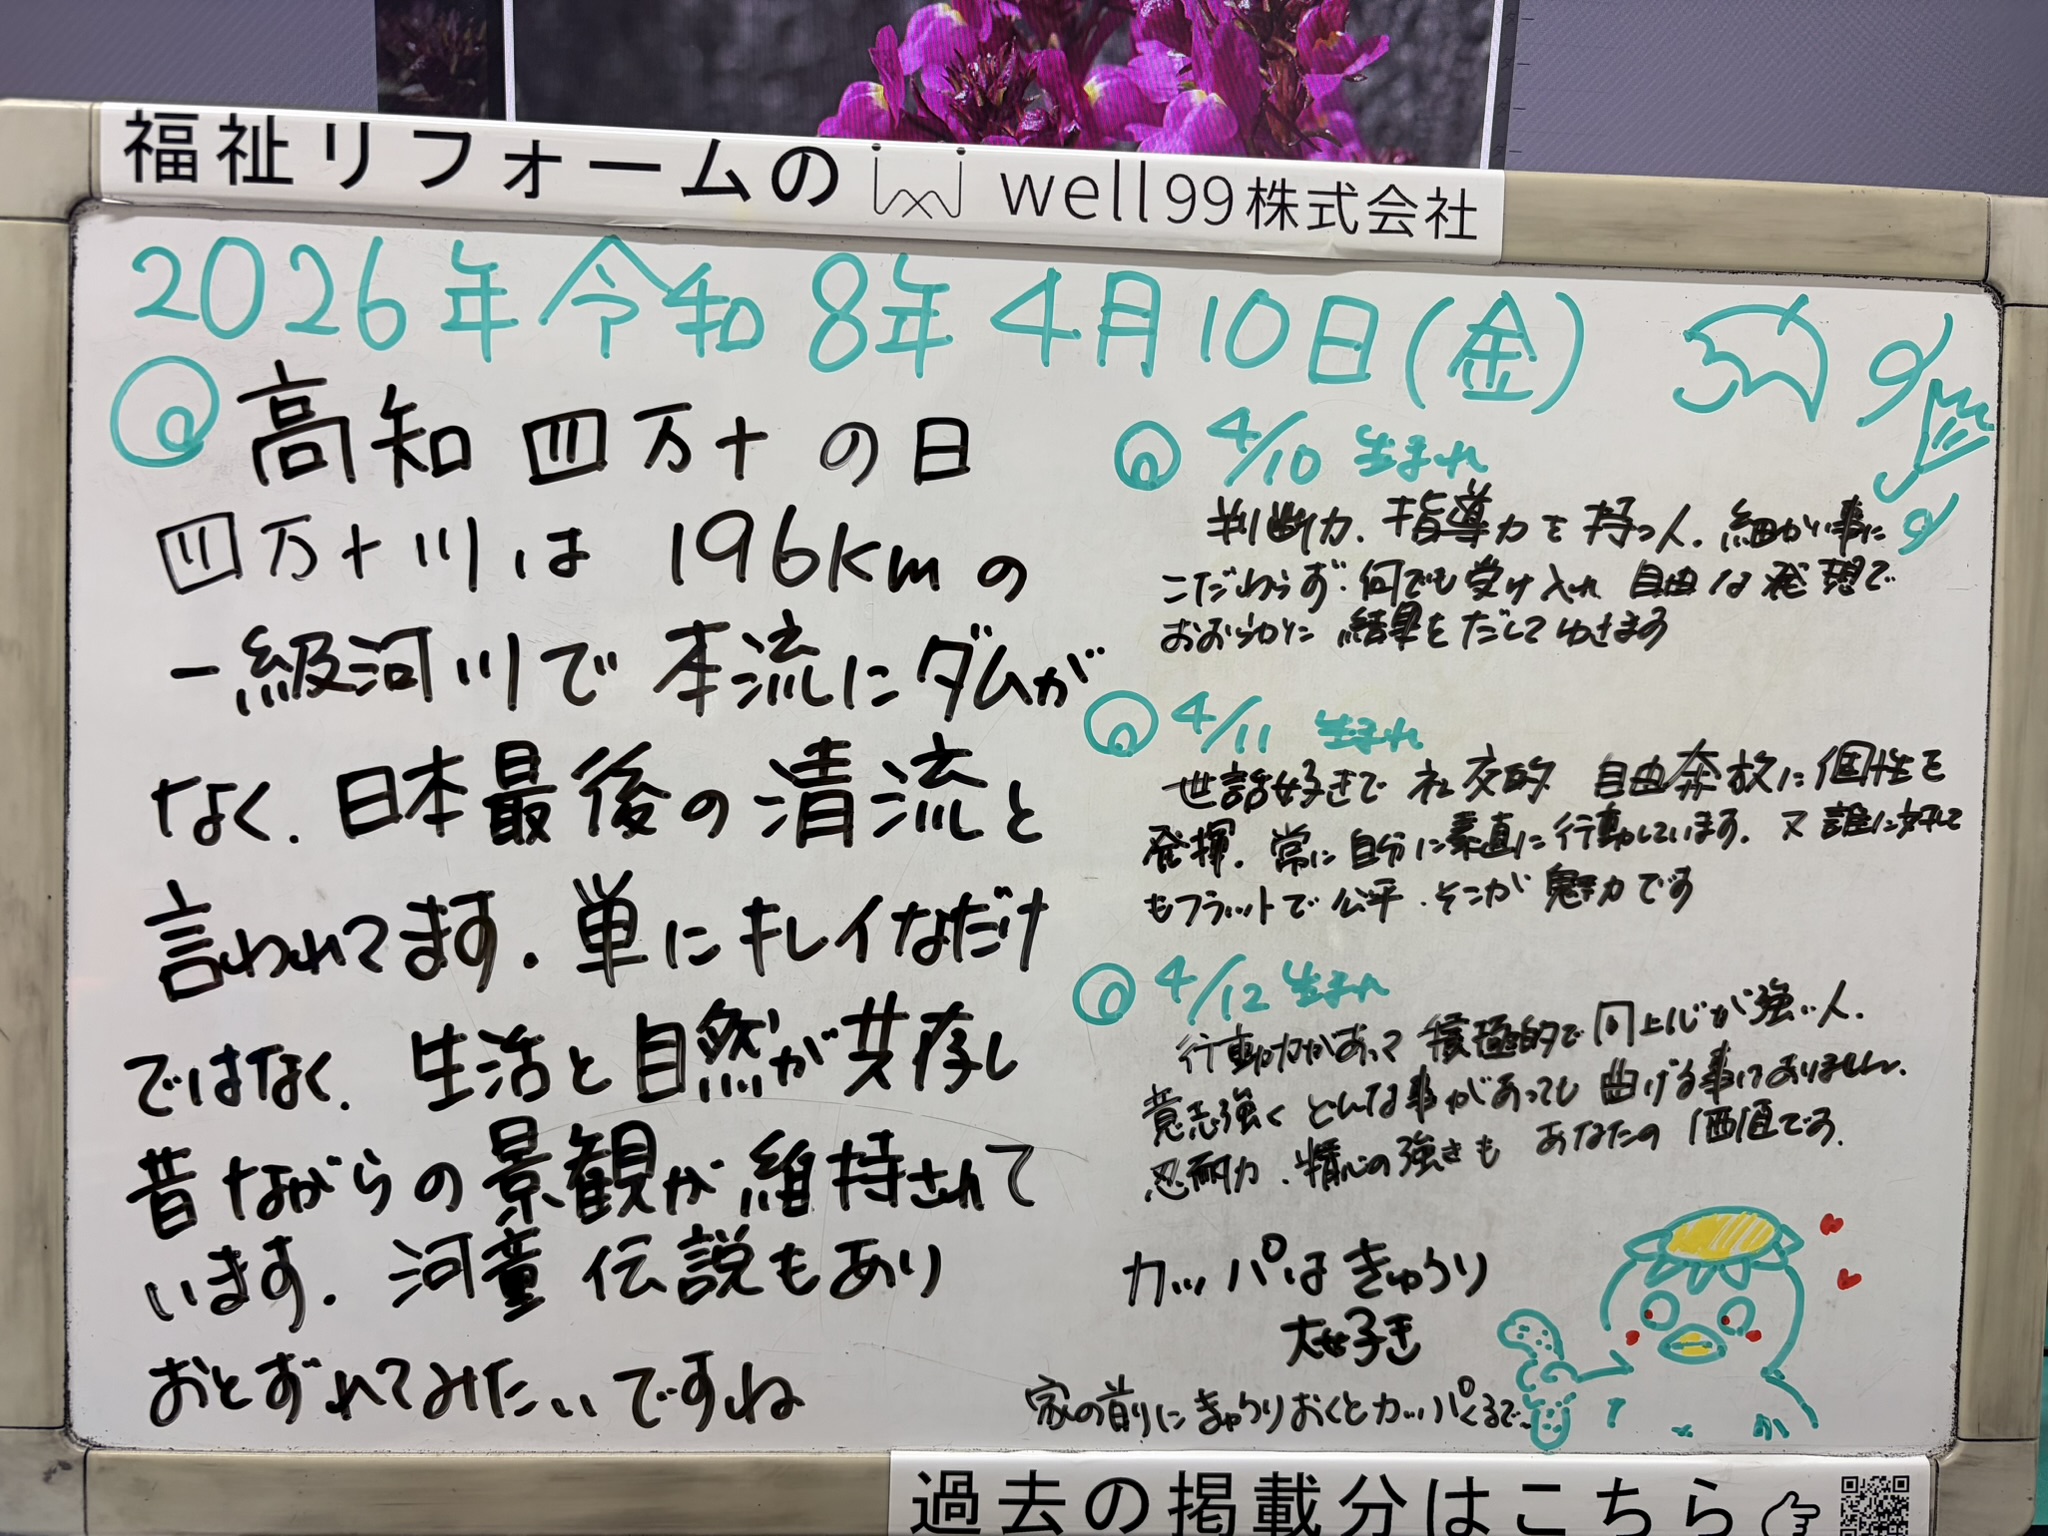 福祉リフォームの well99株式会社
2026年令和8年4月10日(金)
高知 四万十の日
四万十川は 196kmの
一級河川で 本流にダムが
なく、日本最後の清流と
言われてます。単にキレイなだけ
ではなく、生活と自然が共存し
昔ながらの景観が維持されて
います。河童伝説もあり
おとずれてみたいですね
4/10 生まれ
判断力、指導力を持つ人。細かい事に
こだわらず、何でも受け入れ 自由な発想で
おおらかに 結果をだしてゆきます
4/11 生まれ
世話好きで 社交的 自由奔放に個性を
発揮。常に自分に素直に行動しています。又誰に対して
もフラットで公平。そこが魅力です
4/12 生まれ
行動力があって 積極的で向上心が強い人。
意志強く どんな事があっても 曲げる事はありません。
忍耐力、精神の強さも あなたの価値です。
カッパはきゅうり
大好き
家の前にきゅうりおくとカッパくるで
過去の掲載分はこちら